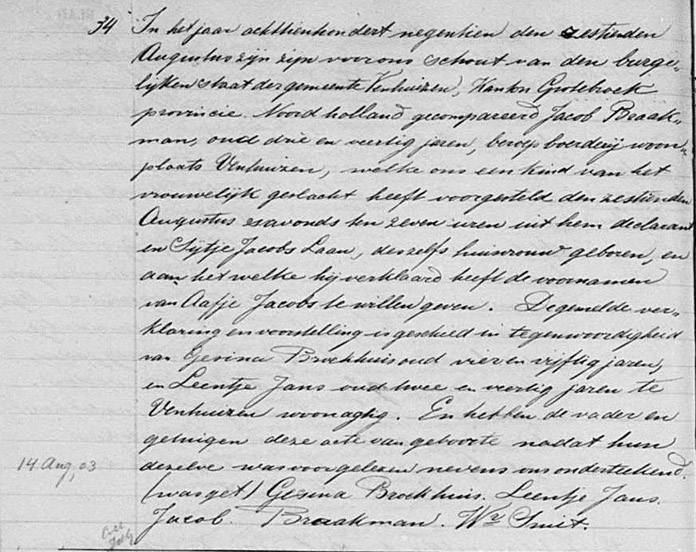 34 In het jaar achttienhondert negentien den zestienden
Augustus zijn zijn voor ons schout van den burge-
lijken staat der gemeente Venhuizen, Kanton Grotebroek
provincie. Noord holland gecompareerd Jacob Braak-
man, oud drie en veertig jaren, beroep boerderij woon-
plaats Venhuizen, welke ons een kind van het
vrouwelijk geslacht heeft voorgesteld den zestienden
Augustus esavonds ten zeven uren uit hem declarant
en Sijtje Jacobs Laan, deszelfs huisvrouw geboren, en
aan het welke hij verklaard heeft de voornamen
van Aafje Jacobs te willen geven. De gemelde ver-
klaring en voorstelling is geschied in tegenwoordigheid
van Gesina Broekhuis oud vier en vijftig jaren,
en Leentje Jans oud twee en veertig jaren te
Venhuizen woonagtig. En hebben de vader en
getuigen deze acte van geboorte nadat hun
14 Aug, 03
dezelve was voorgelezen nevens ons onderteekend.
(was get) Gesina Broekhuis. Leentje Jans.
Jacob. Braakman. Wr Smit.